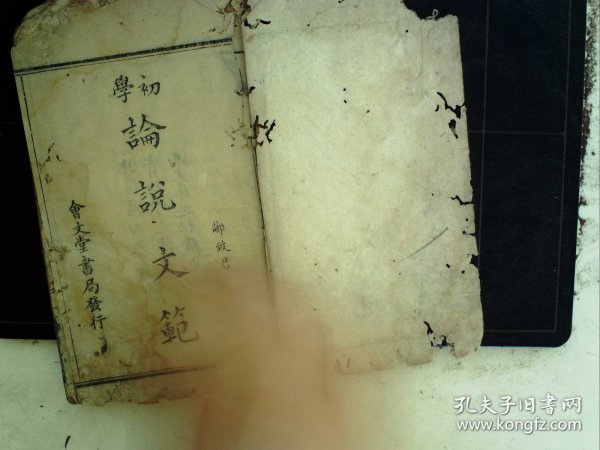 初學
論說文範
會文堂書局發行
孔夫子旧书网
www.kongfz.com